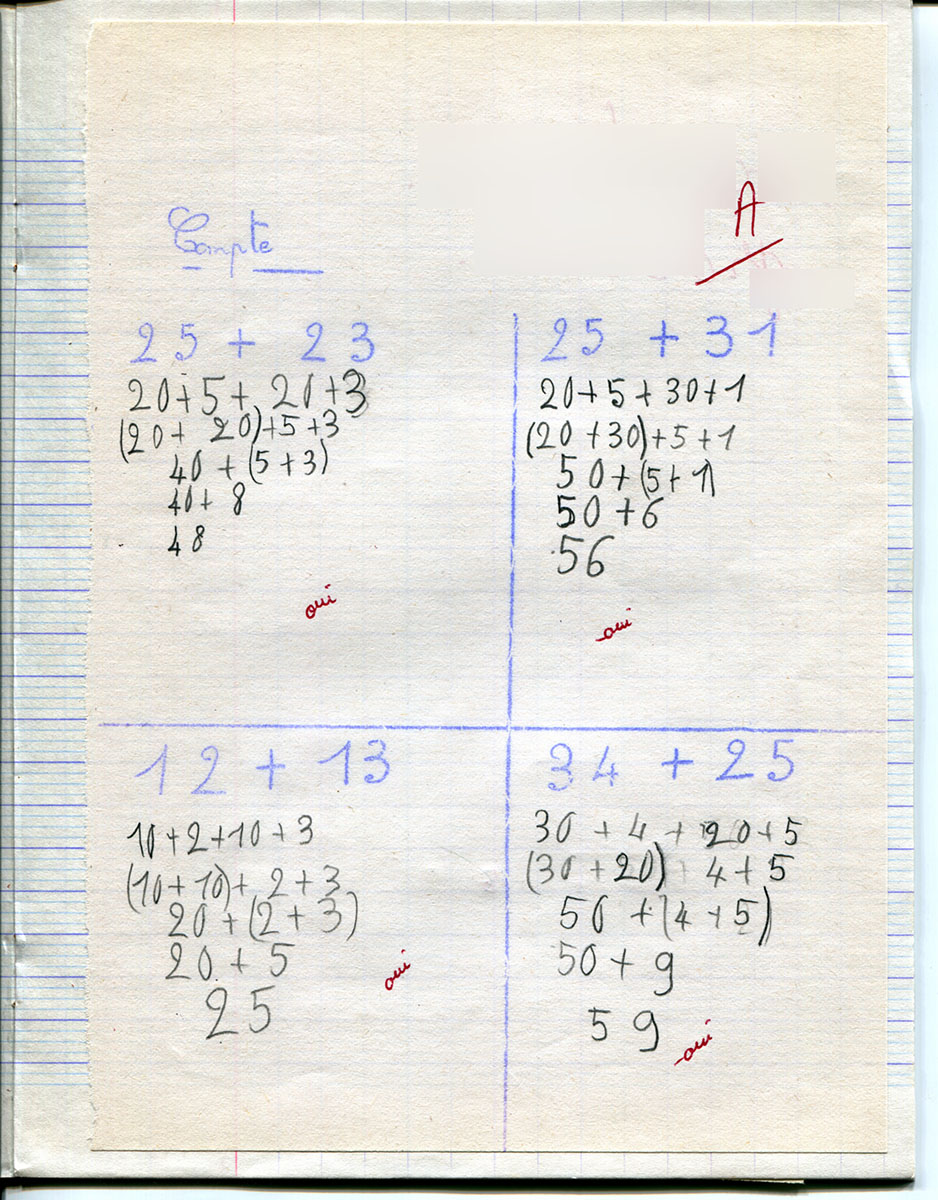 A
Compte
25 + 23
20+5+ 20+3
(20+ 20)+5+3
40 + (5+3)
40+ 8
48
oui
25 + 31
20+5+30+1
(20+30)+5+1
50+(5+1)
50+6
56
oui
12 + 13
10+2+10+3
(10+10)+ 2+3
20 +(2+3)
20 + 5
25
oui
34 + 25
30 + 4 + 20+5
(30+20) + 4+5
50 +(4+5)
50+ 9
59
oui